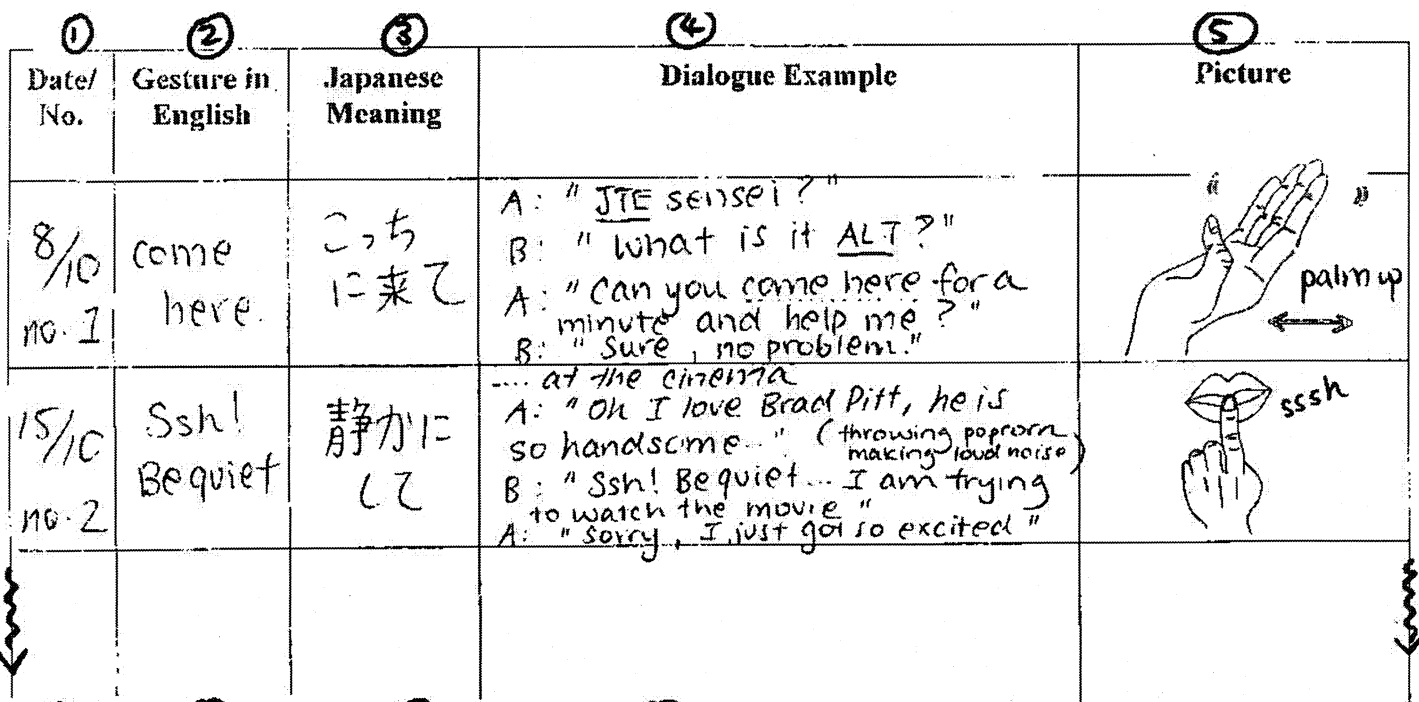 ① ② ③ ④ ⑤
Date/
No.
Gesture in
English
Japanese
Meaning
Dialogue Example
Picture
8/10
no. 1
come
here.
こっち
に来て
A: " JTE sensei?"
B: " What is it ALT?"
A: "Can you come here for a
minute and help me?"
B: " Sure, no problem."
palm up
15/10
no. 2
Ssh!
Be quiet
静かに
して
.... at the cinema
A: "Oh I love Brad Pitt, he is
so handsome..." (throwing popcorn
making loud noise)
B: "Ssh! Be quiet... I am trying
to watch the movie "
A: "Sorry, I just got so excited "
sssh